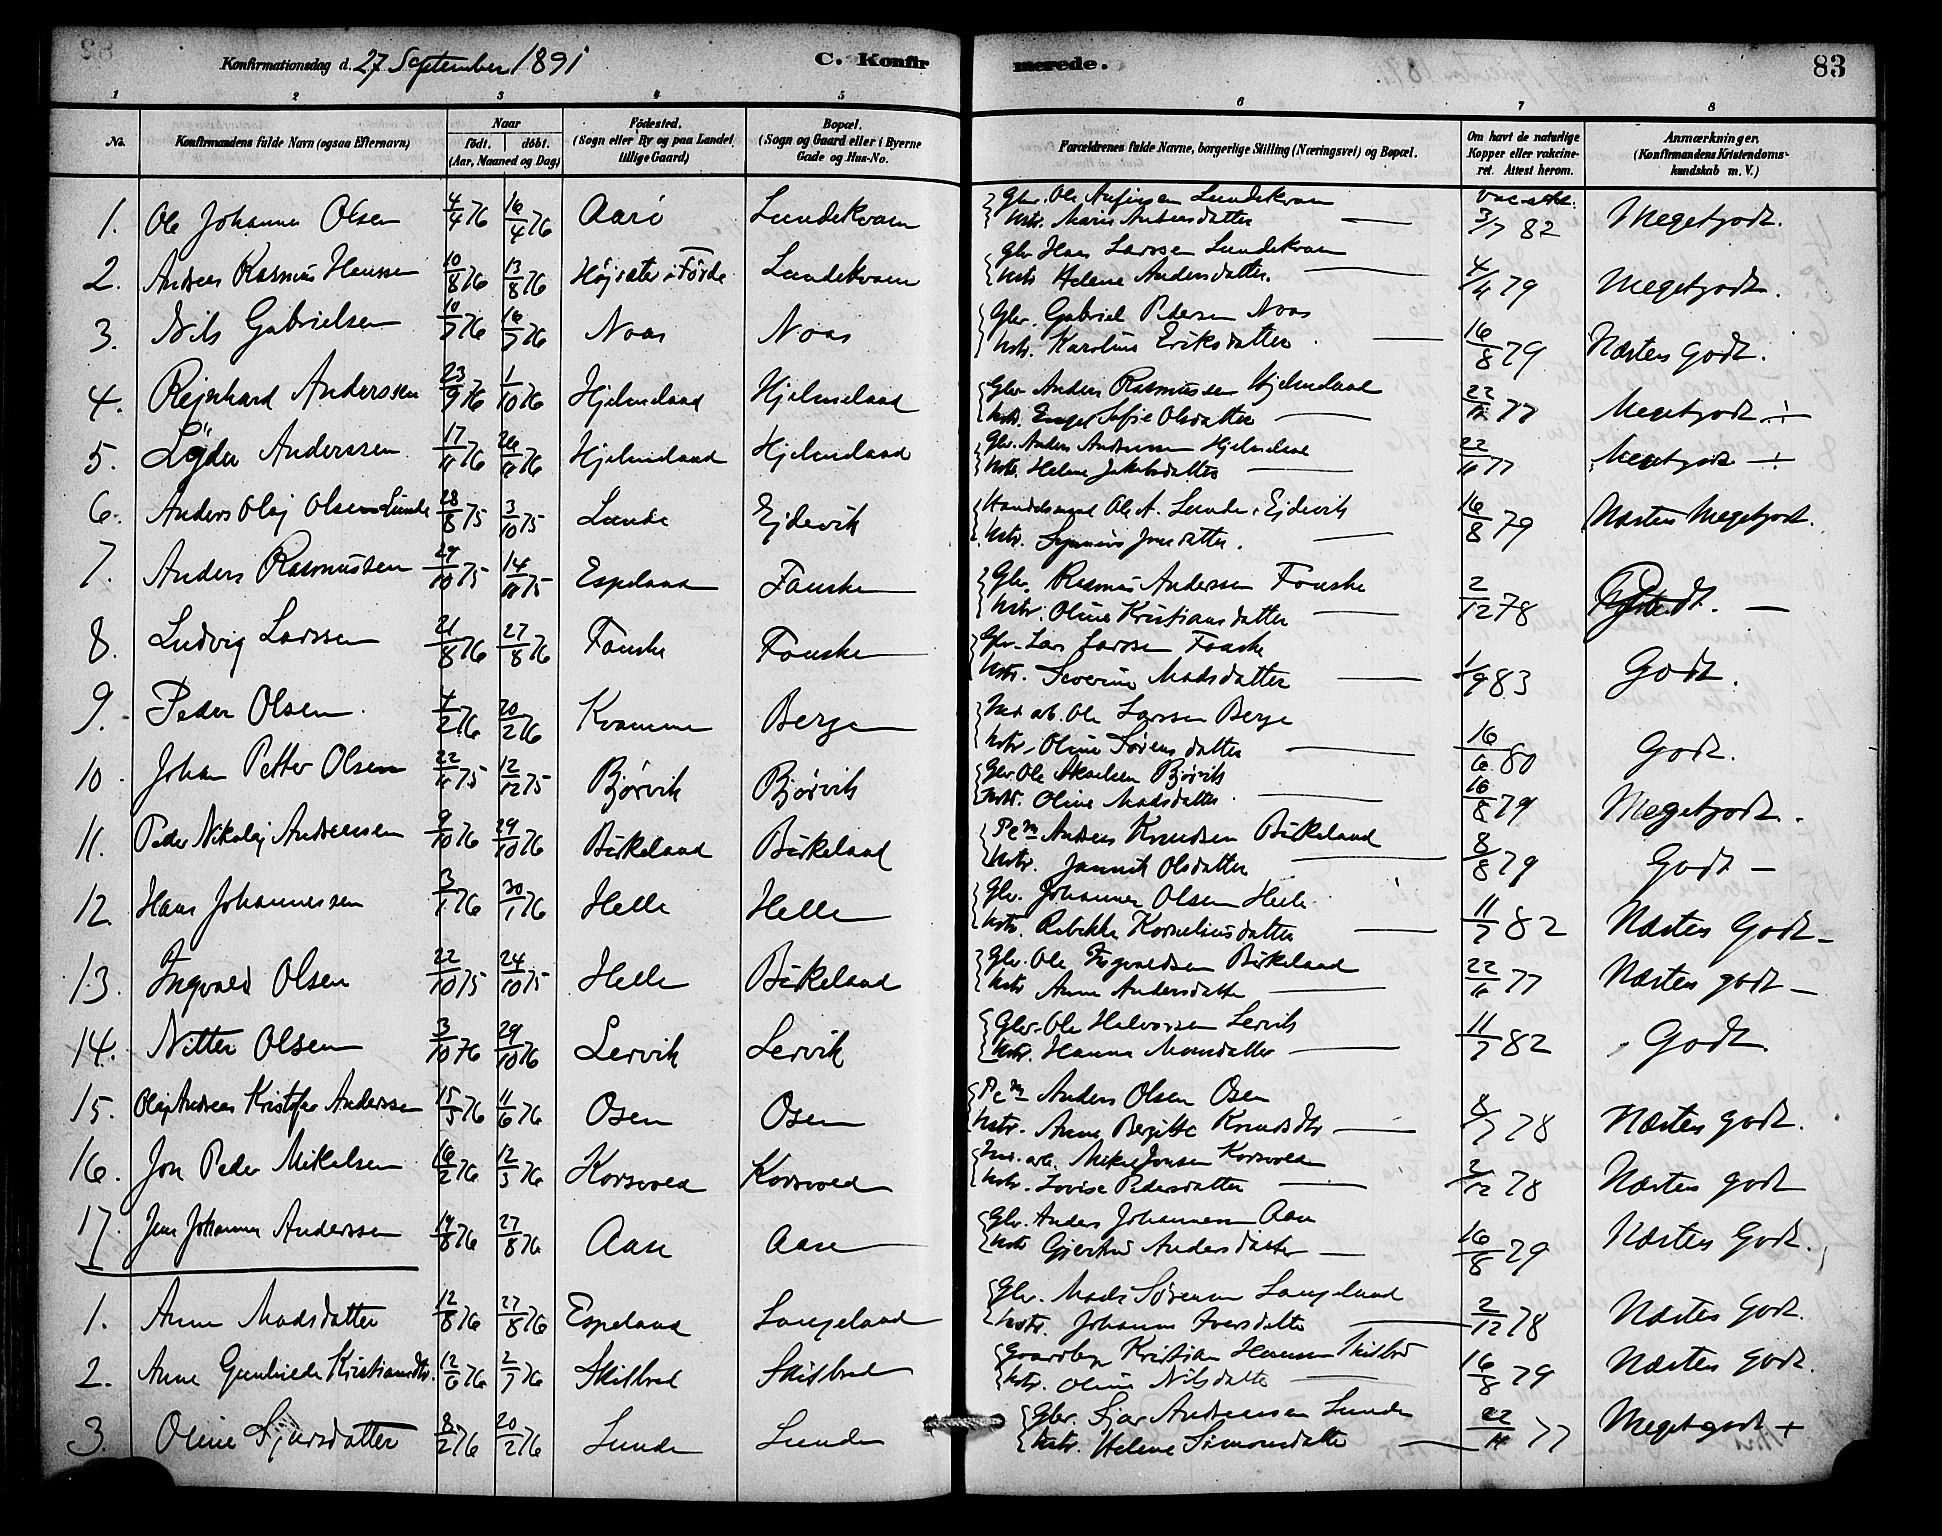 Konfirmationsdag d. 27 September 1891 C. Konfirmerede. 83
1 2 3 4 5 6 7 8
No. Konfirmandens fulde Navn (ogsaa Efternavn) Naar født. døbt. (Aar, Maaned og Dag) Fødested. (Sogn eller By og paa Landet tillige Gaard) Bopæl. (Sogn og Gaard eller i Byerne Gade og Hus-No. Forældrenes fulde Navne, borgerlige Stilling (Næringsvei) og Bopæl. Om havt de naturlige Kopper eller vakcineret. Attest herom. Anmærkninger, (Konfirmandens Kristendomskundskab m. V.)
1. Ole Johannes Olsen 4/4 76 16/4 76 Aarö Lundekvam Gbr. Ole Lundekvam
Kstr. Marie Andersdatter — 3/7 82 Megetgodt.
2. Andreas Rasmus Hanssen 10/8 76 13/8 76 Højsæter i Förde Lundekvam Gbr Hans Larssen Lundekvam
Kstr Helene Andersdatter. — 4/4 79 Megetgodt.
3. Nils Gabrielsen 10/7 76 16/7 76 Noas Noas Gbr. Gabriel Pedersen Noas
Kstr. Karoline Eriksdatter. — 16/8 79 Næsten Godt.
4. Rejnhard Anderssen 23/9 76 1/10 76 Hjelmeland Hjelmeland Gbr Anders Rasmussen Hjelmeland
Kstr. Engel Sofie Olsdatter — 77 Megetgodt ÷
5. Anderssen 17/11 76 26/11 76 Hjelmeland Hjelmeland Gbr. Anders Hjelmeland
Kstr. Helene Jakobsdatter — 77 Megetgodt ÷
6. Anders Olaj Olsen Lunde 28/8 75 3/10 75 Lunde Ejdevik Handelsmand Ole A. Lunde, Ejdevik
Kstr. — 16/8 79 Næsten Megetgodt.
7. Anders Rasmussen 24/10 75 14/11 75 Espeland Fauske Gbr. Rasmus Anderssen Fauske
Kstr. Oline Kristiansdatter — 2/12 78 —
8. Ludvig Larssen 21/8 76 27/8 76 Fauske Fauske Gbr. Lars Larssen Fauske
Kstr. Severine Madsdatter — 1/9 83 Godt.
9. Peder Olsen 4/2 76 20/2 76 Kvamme Berge Ole Larssen Berge
Kstr. Oline Sörensdatter — 16/6 80 Godt.
10. Johan Petter Olsen 22/11 75 12/12 75 Bjørvik Bjørvik Gbr Ole Bjørvik
Kstr. Oline Madsdatter. — 16/8 79 Megetgodt.
11. Peder Nikolaj Andreassen 9/10 76 29/10 76 Birkeland Birkeland Andreas Knudsen Birkeland
Kstr. Olsdatter — 8/8 79 Godt —
12. Hans Johannessen 3/1 76 30/1 76 Helle Helle Gbr. Johannes Olsen Helle
Kstr. Rebekka Korneliusdatter — 11/7 82 Næsten Godt —
13. Ingvald Olsen 22/10 75 24/10 75 Helle Birkeland Gbr. Ole Birkeland
Kstr Anne Andersdatter — 77 Næsten godt —
14. Nitter Olsen 3/10 76 29/10 76 Lervik Lervik Gbr. Ole Halvorsen Lervik
Kstr. Hanna Monsdatter — 11/7 82 Godt
15. Olaj Andreas Kristofer Anderssen 15/5 76 11/6 76 Osen Osen Anders Olsen Osen
Kstr. Anne Bergitte Knudsdtr — 8/7 78 Næsten godt.
16. Jon Peder Mikelsen 16/2 76 12/3 76 Korsvold Korsvold Mikel Jonsen Korsvold
Kstr. Lovise Pedersdatter — 2/12 78 Næsten godt
17. Jens Johannes Anderssen 14/8 76 27/8 76 Aase Aase Gbr. Anders Johannessen Aase
Kstr Gjertrud Andersdatter — 16/8 79 Næsten Godt.
1. Anne Madsdatter 12/8 76 27/8 76 Espeland Langeland Gbr. Mads Sörensen Langeland
Kstr. Johanne Iversdatter — 2/12 78 Næsten Godt.
2. Anne Gunhilde Kristiansdtr. 12/6 76 2/7 76 Skilbred Skilbred Kristian Hansen Skilbred
Kstr. Oline Nilsdatter — 16/8 79 Næsten Godt.
3. Oline Sjursdatter 8/2 76 20/2 76 Lunde Lunde Gbr. Sjur Andreassen Lunde
Kstr. Helene Simonsdatter — 77 Megetgodt +